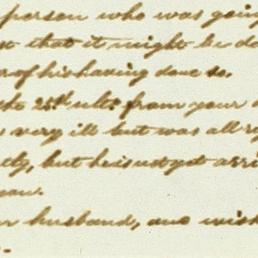 person who was going
that it might be do
of his having done so.
the 25th ulto from your
very ill but was all ri
tly, but he is not yet arri
husband, and wish